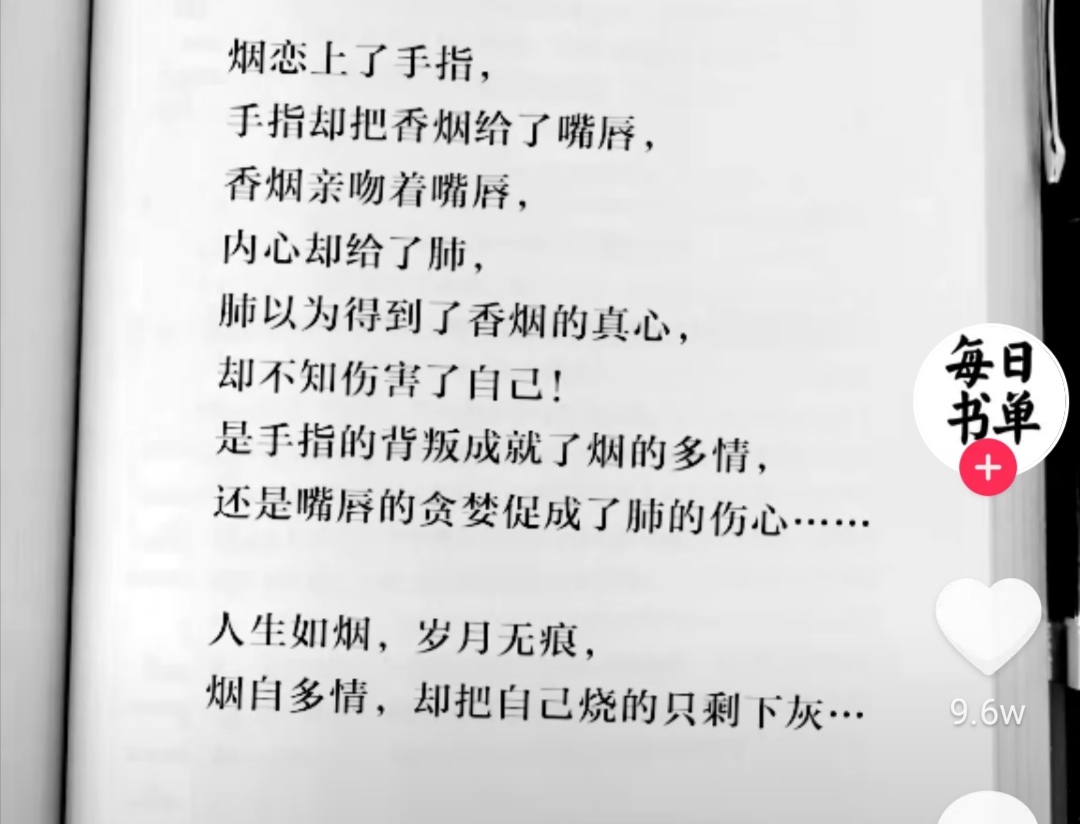 烟恋上了手指，
手指却把香烟给了嘴唇，
香烟亲吻着嘴唇，
内心却给了肺，
肺以为得到了香烟的真心，
却不知伤害了自己！
是手指的背叛成就了烟的多情，
还是嘴唇的贪婪促成了肺的伤心……
人生如烟，岁月无痕，
烟自多情，却把自己烧的只剩下灰…
每日
书单
9.6w